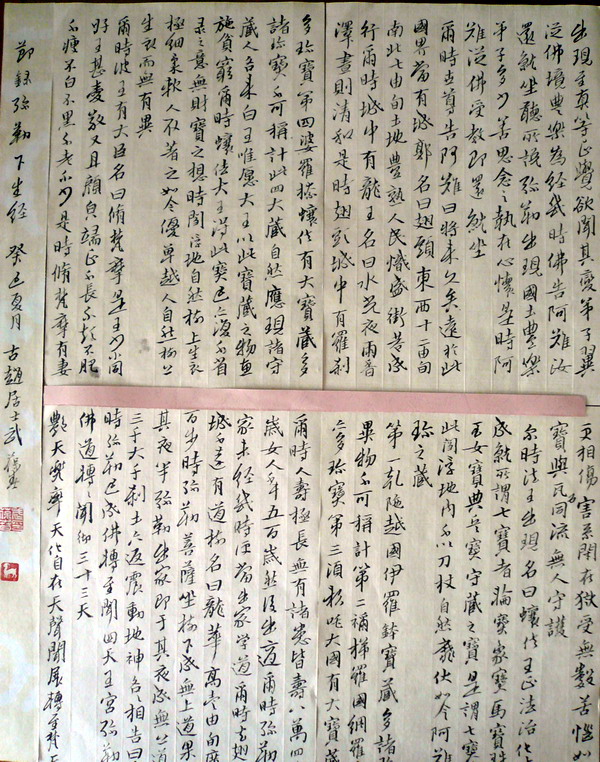 出現至真等正覺欲聞其變弟子翼
從佛境豐樂為經幾時佛告阿難汝
還就坐聽我說彌勒出現國土豐樂
弟子多少善思念之執在心懷是時阿
難從佛受教即還就坐
爾時世尊告阿難曰將來久遠於此
國界當有城郭名曰翅頭東西十二由旬
南北七由旬土地豐熟人民熾盛街巷成
行爾時城中有龍王名曰水光夜雨香
澤晝則清和是時翅頭城中有羅剎
多珍寶第四婆羅㮈蠰佉有大寶藏多
諸珍寶不可稱計此四大藏自然應現諸守
藏人各來白王惟愿大王以此寶藏之物惠
施貧窮爾時蠰佉大王得此寶已亦復不省
录之意無財寶之想時閻浮地自然樹上生衣
極細柔軟人取著之如今優單越人自然樹上
生衣而無有異
爾時彼王有大臣名曰脩梵摩是王少小同
好王甚愛敬又且顏貌端正不長不短不肥
不瘦不白不黑不老不少是時脩梵摩有妻
節録弥勒下生經 癸巳夏月 古趙居士武
更相傷害繫閉在獄受無數苦惱如
寶與瓦同流無人守護
尔時法王出現名曰蠰佉王正法治化七
成就所謂七寶者輪寶象寶馬寶珠
玉女寶典兵寶守藏之寶是謂七寶
此閻浮地內不以刀杖自然靡伏如今阿難
珍之藏
第一乾陀越國伊羅鉢寶藏多諸珍
異物不可稱計第二彌梯羅國綢羅
亦多珍寶第三須賴吒大國有大寶藏
爾時人壽極長無有諸患皆壽八萬四
歲女人年五百歲然後出適爾時弥勒
家未經幾時便當出家學道爾時去翅
城不遠有道樹名曰龍華高一由旬廣
百步時弥勒菩薩坐樹下成無上道果
其夜半弥勒出家即于其夜成無上道
三千大千剎土六返震動地神各各相告曰
時弥勒已成佛轉至聞四天王宮弥勒
佛道轉轉聞徹三十三天
豔天兜率天化自在天聲聞展轉至梵天